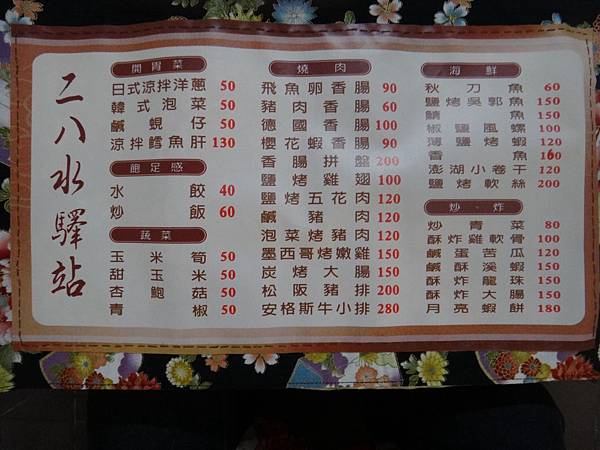 二八水驛站
開胃菜
日式涼拌洋蔥 50
韓式泡菜 50
鹹蜆仔 50
涼拌鱈魚肝 130
飽足感
水餃 40
炒飯 60
蔬菜
玉米筍 50
甜玉米 50
杏鮑菇 50
青椒 50
燒肉
飛魚卵香腸 90
豬肉香腸 60
德國香腸 100
櫻花蝦香腸 90
香腸拼盤 200
鹽烤雞翅 100
鹽烤五花肉 120
鹹豬肉 120
泡菜烤豬肉 120
墨西哥烤嫩雞 150
炭烤大腸 150
松阪豬排 200
安格斯牛小排 280
海鮮
秋刀魚 60
鹽烤吳郭魚 150
鯖魚 150
椒鹽風螺 100
薄鹽烤蝦 120
香魚 160
澎湖小卷干 120
鹽烤軟絲 200
炒．炸
炒青菜 80
酥炸雞軟骨 100
鹹蛋苦瓜 120
鹹酥溪蝦 150
酥炸龍珠 150
酥炸大腸 150
月亮蝦餅 180